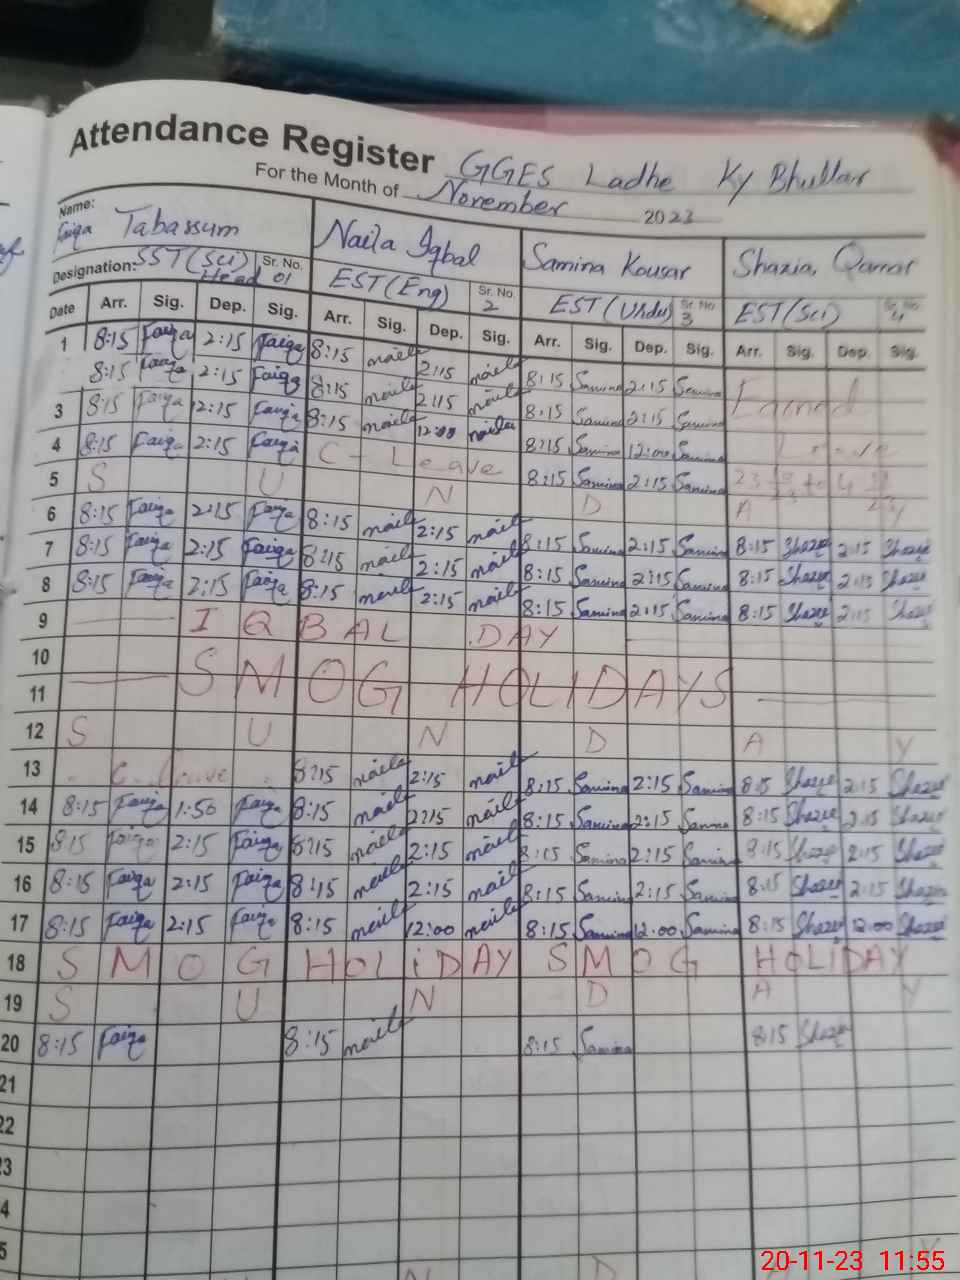 Attendance Register GGES Ladhe Ky Bhullar
For the Month of November 2023
Name: Faiqa Tabassum Naila Iqbal Samina Kousar Shazia Qamar
Designation: SST(Sci) Head Sr. No. 01 EST(Eng) Sr. No. 2 EST(Urdu) Sr. No. 3 EST(Sci) Sr. No. 4
Date Arr. Sig. Dep. Sig. Arr. Sig. Dep. Sig. Arr. Sig. Dep. Sig. Arr. Sig. Dep. Sig.
1 8:15 Faiqa 2:15 Faiqa 8:15 naila 2:15 naila 8:15 Samina 2:15 Samina
8:15 Faiqa 2:15 Faiqa 8:15 naila 2:15 naila 8:15 Samina 2:15 Samina
3 8:15 Faiqa 12:15 Faiqa 8:15 naila 12:00 naila 8:15 Samina 12:00 Samina
4 8:15 Faiqa 2:15 Faiqa C - Leave 8:15 Samina 2:15 Samina
5 S U N D A Y
6 8:15 Faiqa 2:15 Faiqa 8:15 naila 2:15 naila 8:15 Samina 2:15 Samina 8:15 Shazia 2:15 Shazia
7 8:15 Faiqa 2:15 Faiqa 8:15 naila 2:15 naila 8:15 Samina 2:15 Samina 8:15 Shazia 2:15 Shazia
8 8:15 Faiqa 2:15 Faiqa 8:15 naila 2:15 naila 8:15 Samina 2:15 Samina 8:15 Shazia 2:15 Shazia
9 IQBAL DAY
10
SMOG HOLIDAYS
11
12 S U N D A Y
13 C-Leave 8:15 naila 2:15 naila 8:15 Samina 2:15 Samina 8:15 Shazia 2:15 Shazia
14 8:15 Faiqa 1:50 Faiqa 8:15 naila 2:15 naila 8:15 Samina 2:15 Samina 8:15 Shazia 2:15 Shazia
15 8:15 Faiqa 2:15 Faiqa 8:15 naila 2:15 naila 8:15 Samina 2:15 Samina 8:15 Shazia 2:15 Shazia
16 8:15 Faiqa 2:15 Faiqa 8:15 naila 2:15 naila 8:15 Samina 2:15 Samina 8:15 Shazia 2:15 Shazia
17 8:15 Faiqa 2:15 Faiqa 8:15 naila 12:00 naila 8:15 Samina 12:00 Samina 8:15 Shazia 12:00 Shazia
18 SMOG HOLiDAY SMOG HOLIDAY
19 S U N D A Y
20 8:15 Faiqa 8:15 naila 8:15 Samina 8:15 Shazia
21
22
23
4
5
N D A Y
20-11-23 11:55